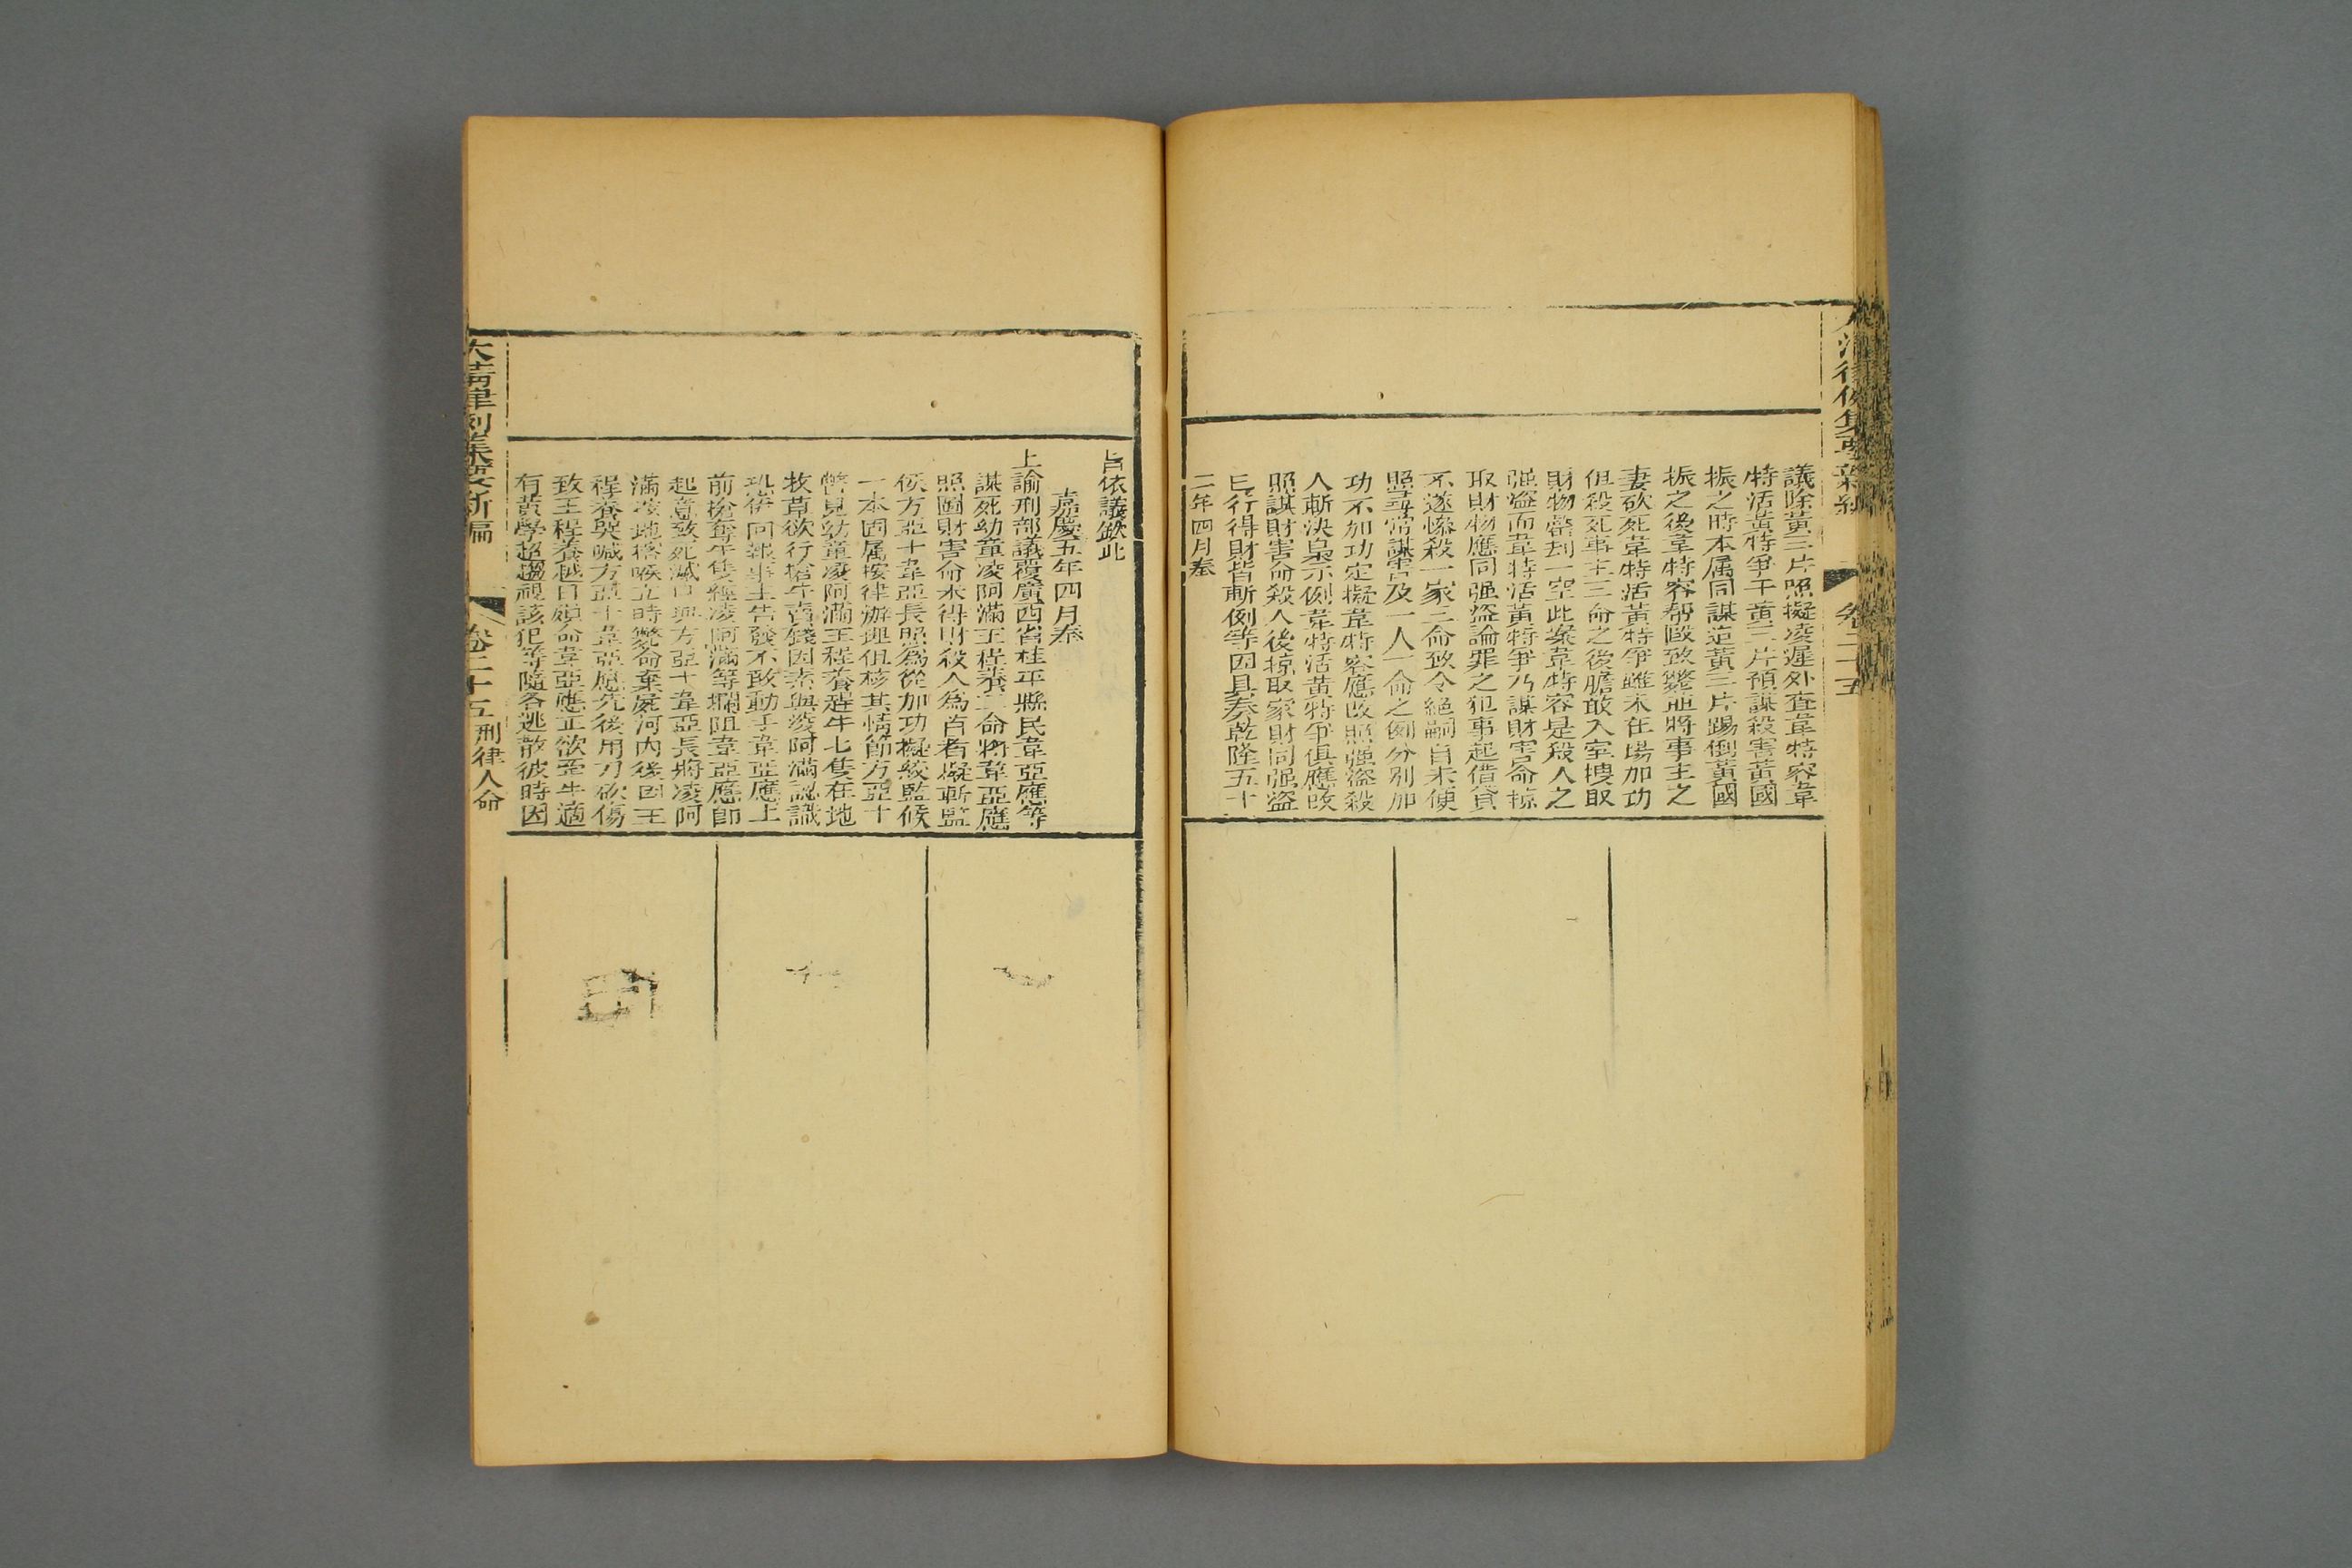 大清律例集要新編 卷二十五
議除黃三片照擬凌遲外查韋特容韋
特活黃特爭干黃三片預謀殺害黃國
振之時本属同謀迨黃三片踢倒黃國
振之後韋特容帮毆致斃並將事主之
妻砍死韋特活黃特爭雖未在塲加功
但殺死事主三命之後膽敢入室搜取
財物罄刦一空此案韋特容是殺人之
强盗而韋特活黃特爭乃謀財害命掠
取財物應同强盗論罪之犯事起借貸
不遂慘殺一家三命致令絕嗣自未便
照尋常謀害及一人一命之例分别加
功不加功定擬韋特容應改照强盗殺
人斬決梟示例韋特活黃特爭俱應改
照謀財害命殺人後掠取家財同强盗
已行得財皆斬例等因具奏乾隆五十
二年四月奉
旨依議欽此
嘉慶五年四月奉
上諭刑部議覆廣西省桂平縣民韋亞應等
謀死幼童凌阿滿王程養二命將韋亞應
照圖財害命未得財殺人為首者擬斬監
候方亞十韋亞長照為從加功擬絞監候
一本固属按律辦理但核其情節方亞十
瞥見幼童凌阿滿王程養趕牛七隻在地
牧草欲行搶牛賣錢因素與凌阿滿認識
恐伊回報事主告發不敢動手韋亞應上
前搶奪牛隻經凌阿滿等攔阻韋亞應卽
起意致死滅口與方亞十韋亞長將凌阿
滿按地搭喉立時斃命棄屍河內後因王
程養哭喊方亞十韋亞應先後用刀砍傷
致王程養越日殞命韋亞應正欲牽牛適
有黃學超趨視該犯等隨各逃散彼時因
大清律例集要新編 卷二十五 刑律人命